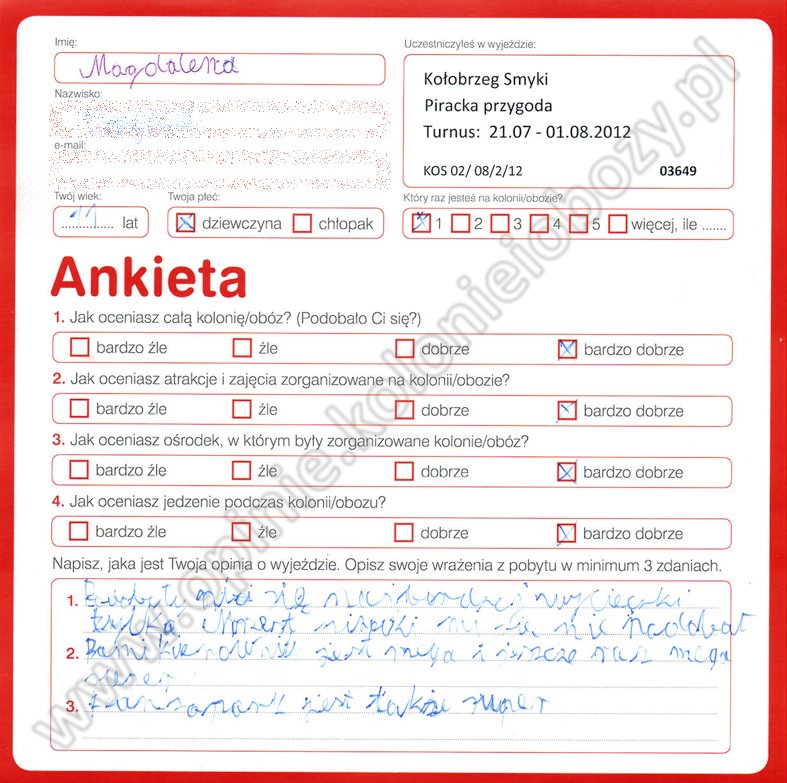 Imię:
Magdalena
Uczestniczyłeś w wyjeździe:
Kołobrzeg Smyki
Piracka przygoda
Turnus: 21.07 - 01.08.2012
KOS 02/ 08/2/12 03649
Nazwisko:
e-mail:
Twój wiek:
11 lat
Twoja płeć:
dziewczyna chłopak
Który raz jesteś na kolonii/obozie?
1 2 3 4 5 więcej, ile .......
Ankieta
1. Jak oceniasz całą kolonię/obóz? (Podobało Ci się?)
bardzo źle źle dobrze bardzo dobrze
2. Jak oceniasz atrakcje i zajęcia zorganizowane na kolonii/obozie?
bardzo źle źle dobrze bardzo dobrze
3. Jak oceniasz ośrodek, w którym były zorganizowane kolonie/obóz?
bardzo źle źle dobrze bardzo dobrze
4. Jak oceniasz jedzenie podczas kolonii/obozu?
bardzo źle źle dobrze bardzo dobrze
Napisz, jaka jest Twoja opinia o wyjeździe. Opisz swoje wrażenia z pobytu w minimum 3 zdaniach.
1. się
się nie
2. Pan jest mega i jeszcze raz mega
super
3. jest także super
www.opinie.kolonieiobozy.pl